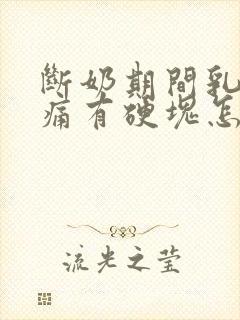 斷奶期間乳
痛有硬塊怎
流光之莹